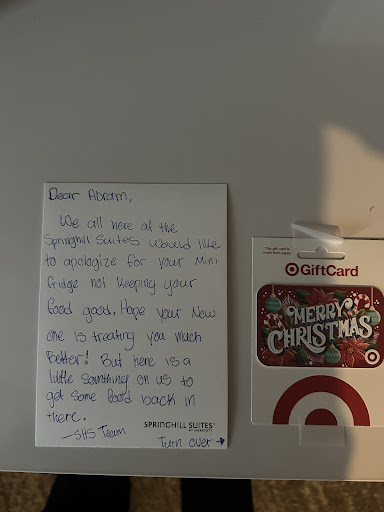 Dear Abram,
We all here at the
Springhill Suites would like
to apologize for your mini
fridge not keeping your
food good. Hope your new
one is treating you much
Better! But here is a
little somthing on us to
get some food back in
there.
-SHS Team
SPRINGHILL SUITES
BY MARRIOTT
Turn over →
This gift card is
made from paper.
GiftCard
MERRY
CHRISTMAS